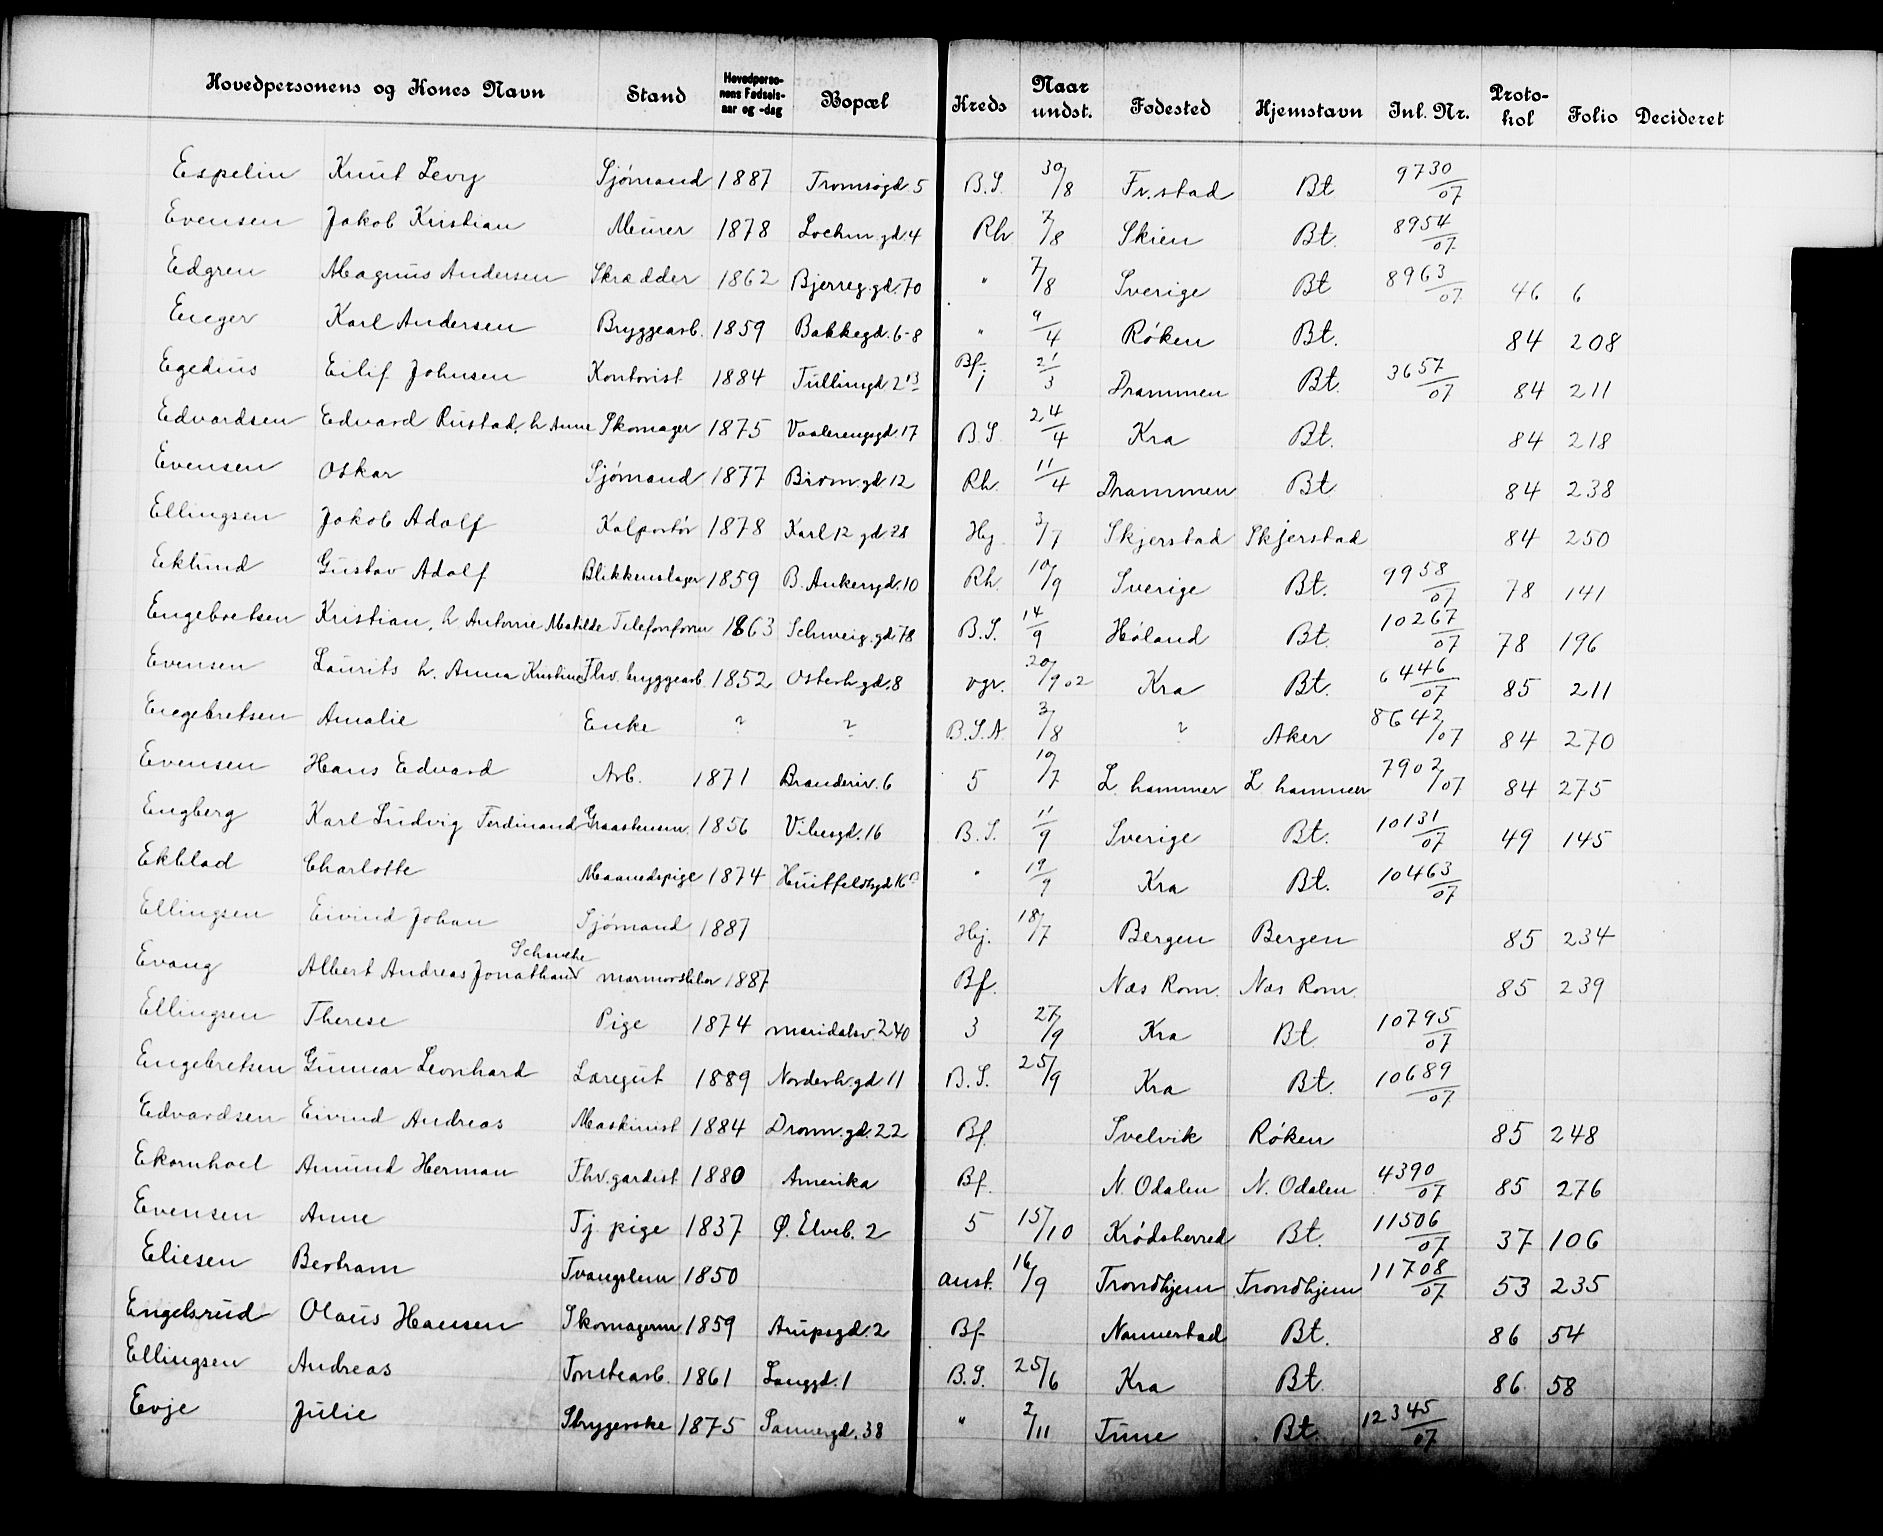 Hovedpersonens og Kones Navn Stand Hovedpersonens Fødselsaar og -dag Bopæl Kreds Naar undst. Fødested Hjemstavn Inl. Nr. Protokol Folio Decideret
Espelin Knut Levy Sjømand 1887 Tromsøgd. 5 B.S. 30/8 Fr.stad Bt 9730/07
Evensen Jakob Kristian Murer 1878 Lochm.gd. 4 Rh 7/8 Skien Bt. 8954/07
Edgren Magnus Andersen Skrædder 1862 Bjerreg.gd. 70 " 7/8 Sverige Bt 8963/07 46 6
Enger Karl Andersen Bryggearb. 1859 Bakkegd. 6-8 " 9/4 Røken Bt. 84 208
Egedius Eilif Johnsen Kontorist 1884 Tullinsgd 2 Bf. 21/3 Drammen Bt. 3657/07 84 211
Edvardsen Edvard Rustad, h Anne Skomager 1875 Vaalerengsgd 17 B.S. 24/4 Kra Bt. 84 218
Evensen Oskar Sjømand 1877 Birom.gd 12 Rh. 11/4 Drammen Bt 84 238
Ellingsen Jakob Adolf Kolportør 1878 Karl 12 gd 28 Hj. 3/7 Skjerstad Skjerstad 84 250
Eklund Gustav Adolf Blikkenslager 1859 B. Ankersgd. 10 Rh. 10/9 Sverige Bt. 9958/07 78 141
Engebretsen Kristian, h Antonie Matilde Telefonform 1863 Schweig.gd 78 B.S. 14/9 Høland Bt. 10267/07 78 196
Evensen Laurits h. Anna Kristine Fhv. bryggearb. 1852 Osterh.gd. 8 vgr. 20/9 02 Kra Bt. 6446/07 85 211
Engebretsen Amalie Enke ? ? B.S.A 3/8 ? Aker 8642/07 84 270
Evensen Hans Edvard Arb. 1871 Branderiv. 6 5 10/7 L. hammer L. hammer 7902/07 84 275
Engberg Karl Ludvig Ferdinand Graastensm. 1856 Vibesgd. 16 B.S. 11/9 Sverige Bt. 10131/07 49 145
Ekblad Charlotte Maanedspige 1874 Huitfeldtsgd 16 " 19/9 Kra Bt. 10463/07
Ellingsen Eivind Johan Sjømand 1887 Hj. 18/7 Bergen Bergen 85 234
Evang Albert Andreas Jonathan Schanche marmorsliber 1887 Bf. Næs Rom. Næs Rom. 85 239
Ellingsen Therese Pige 1874 maridalsv. 240 3 27/9 Kra Bt. 10795/07
Engebretsen Gunnar Leonhard Læregut 1889 Norderh.gd 11 B.S. 25/9 Kra Bt. 10689/07
Edvardsen Eivind Andreas Maskinist 1884 Dronn.gd. 22 Bf. Svelvik Røken 85 248
Ekornhoel Amund Herman Fhv. gardist 1880 Amerika Bf. N. Odalen N. Odalen 4390/07 85 276
Evensen Anne Tj. pige 1837 Ø. Elveb. 2 5 15/10 Krødsherred Bt. 11506/07 37 106
Eliesen Bertram Tvangslem 1850 anst. 16/9 Trondhjem Trondhjem 11708/07 53 235
Engelsrud Olaus Hansen Skomagerm 1859 Arupsgd. 2 Bf. Nannestad Bt. 86 54
Ellingsen Andreas Tomtearb. 1861 Langgd. 1 B.S. 25/6 Kra Bt. 86 58
Evje Julie Strygerske 1875 Sannergd. 38 " 2/11 Tune Bt. 12345/07